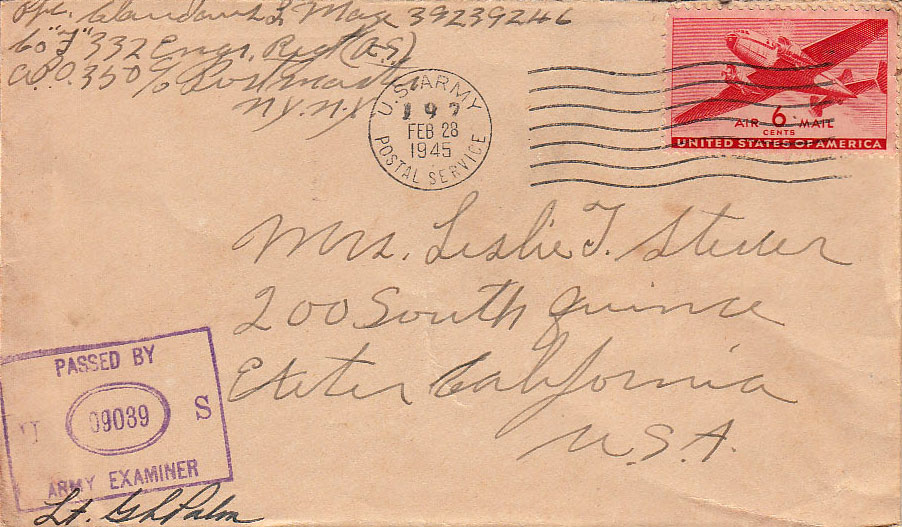 Maze 39239246
Co "F" 332 Engr. Regt (G.S)
A.P.O. 350 c/o Postmaster
N.Y. N.Y.
U.S. ARMY
197
FEB 28
1945
POSTAL SERVICE
AIR 6 MAIL
CENTS
UNITED STATES OF AMERICA
Mrs. Leslie T. Studer
200 South Quince
Exeter California
U.S.A.
PASSED BY
U 09039 S
ARMY EXAMINER
Lt. G L Palm